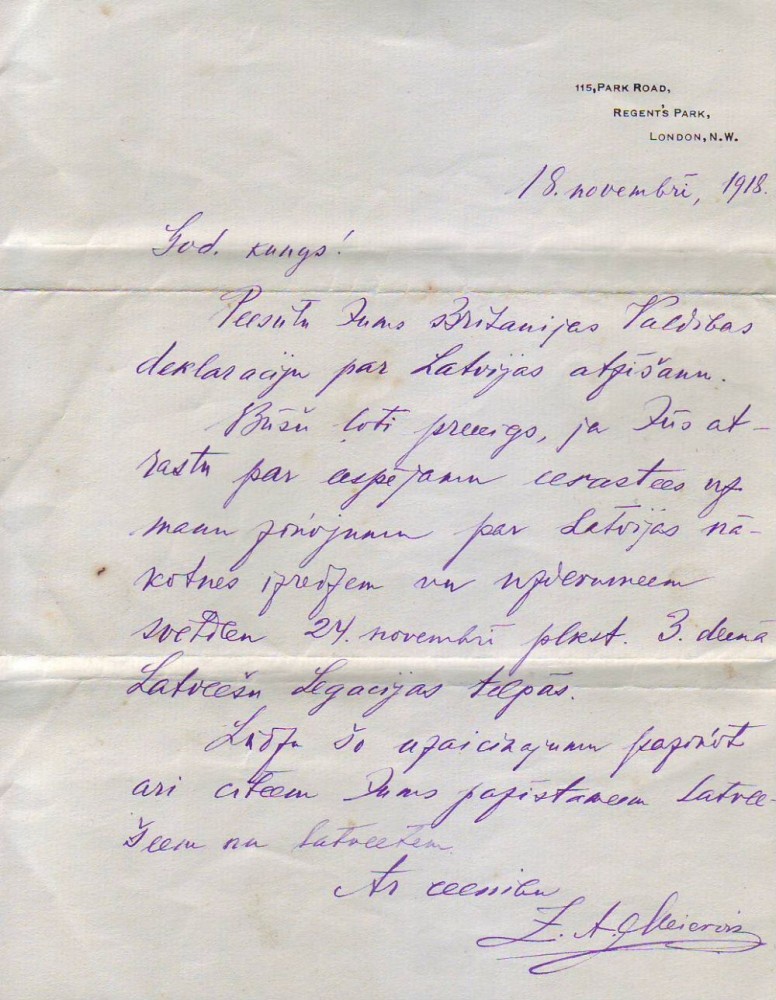 115, PARK ROAD,
REGENT'S PARK,
LONDON, N.W.
18. novembrī, 1918.
God. kungs!
Peesūtu Jums Britanijas Valdibas
deklaraciju par Latvijas atzīšanu.
Būšu ļoti preecigs, ja Jūs at-
rastu par eespējamu eerastees uz
manu ziņojumu par Latvijas nā-
kotnes izredzem un uzdevumeem
svētdien 24. novembrī plkst. 3. deenā
Latveešu Legacijas telpās.
Lūdzu šo uzaicinajumu paziņot
ari citeem Jums pazīstameem Latvee-
šeem un latveetem.
Ar ceenibu
Z. A. Meierovics